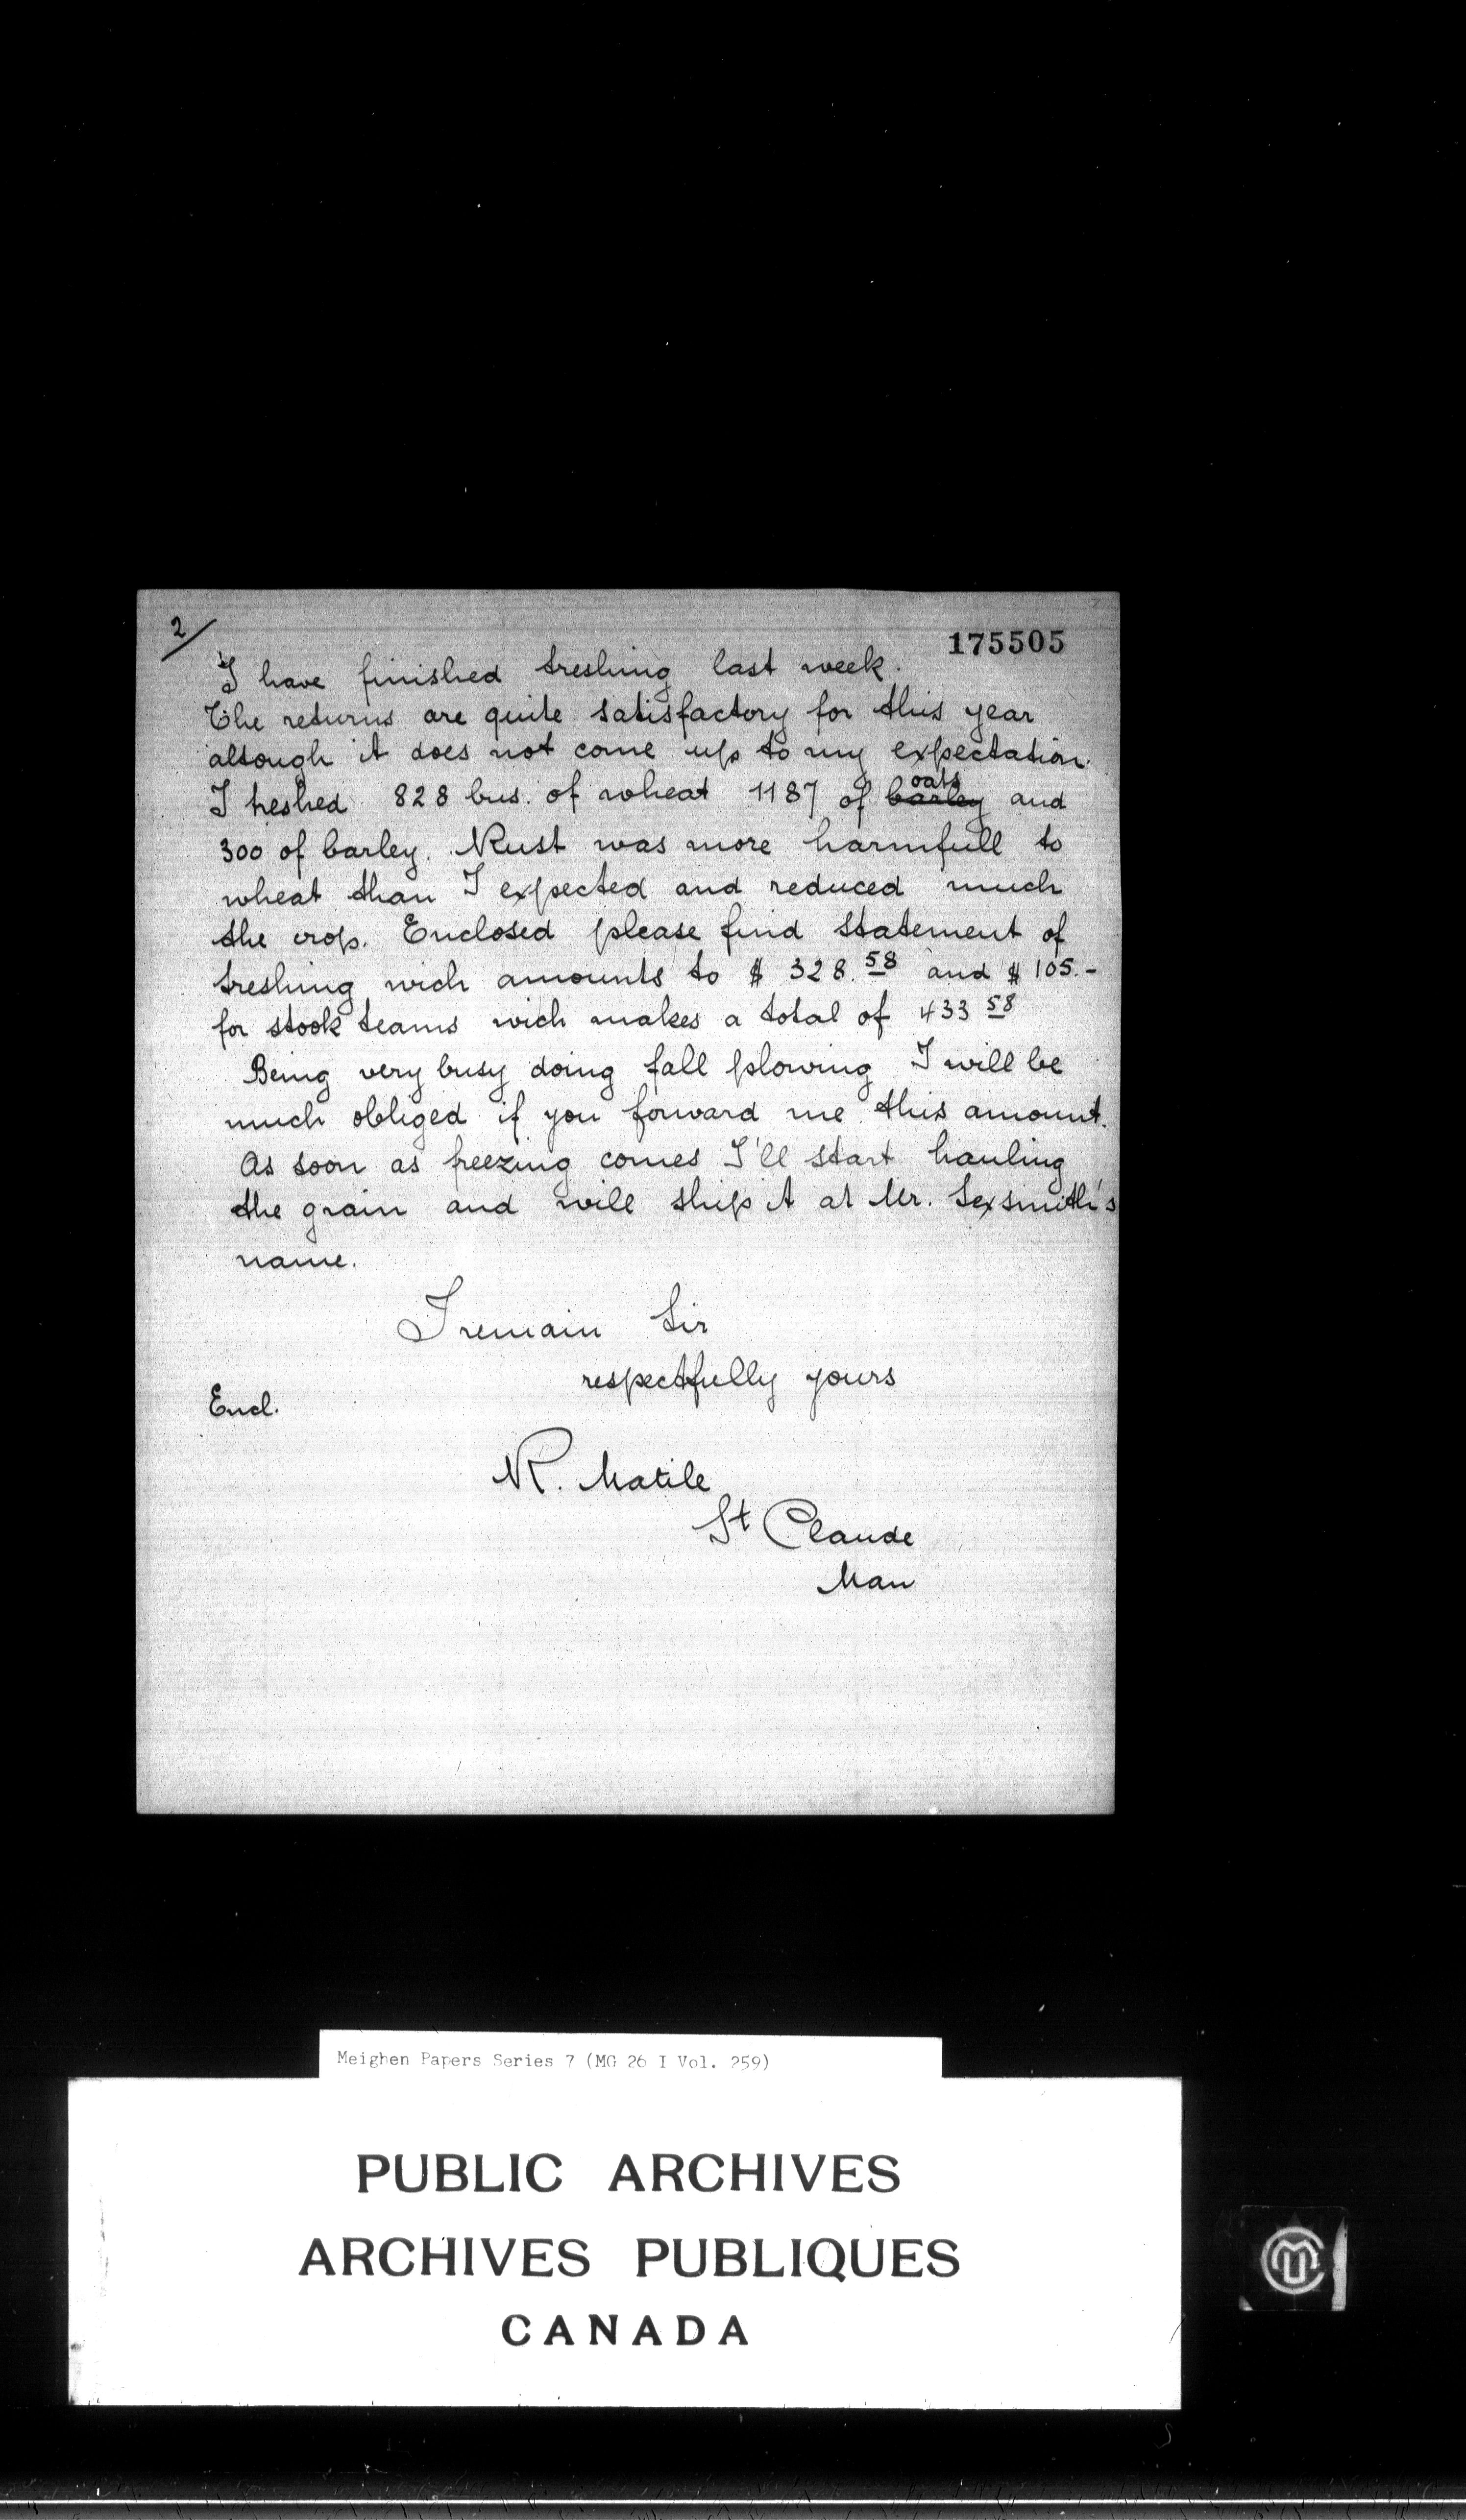 2/
175505
I have finished treshing last week.
The returns are quite satisfactory for this year
altough it does not come up to my expectation.
I treshed 828 bus. of wheat 1187 of barley oats and
300 of barley. Rust was more harmfull to
wheat than I expected and reduced much
the crop. Enclosed please find statement of
treshing wich amounts to $ 328.58 and $ 105.-
for stook teams wich makes a total of 433 58
Being very busy doing fall plowing I will be
much obliged if you forward me this amount.
As soon as freezing comes I'll start hauling
the grain and will ship it at Mr. Sexsmith's
name.
I remain Sir
respectfully yours
Encl.
R. Matile
St Claude
Man
Meighen Papers Series 7 (MG 26 I Vol. 259)
PUBLIC ARCHIVES
ARCHIVES PUBLIQUES
CANADA